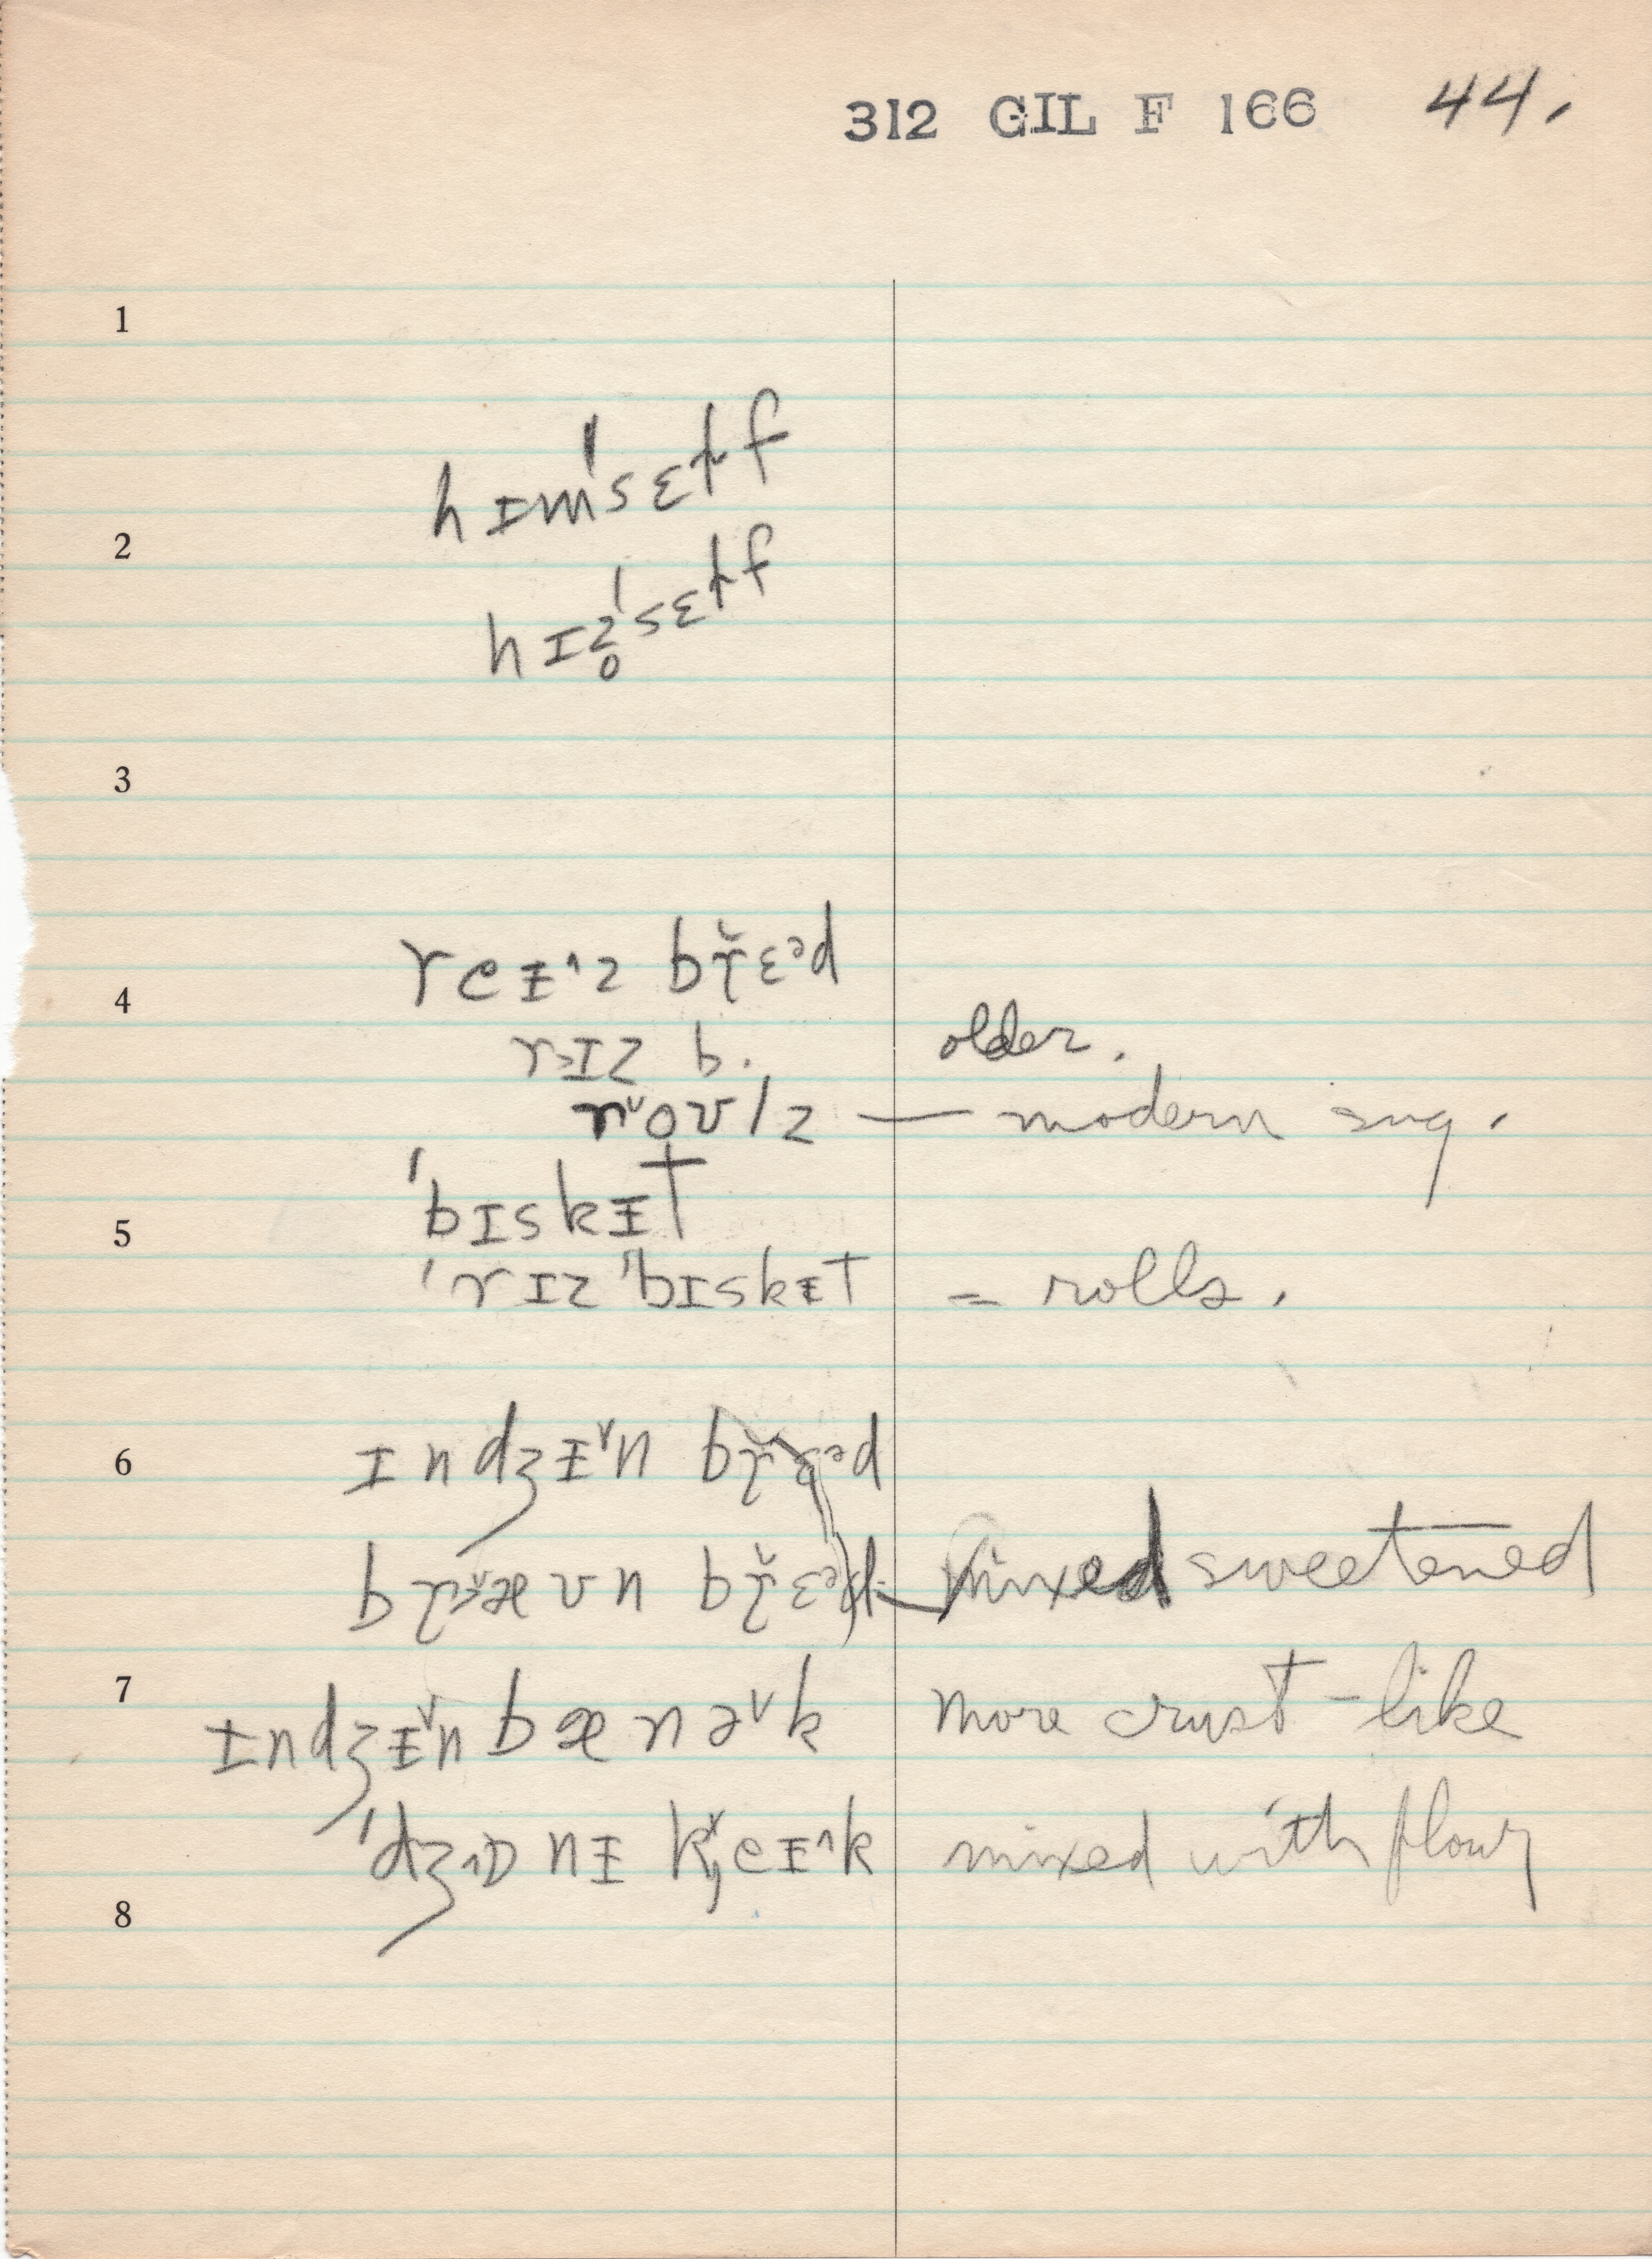 312 GIL F 166 44.
1
hɪmˈsɛɫf
2
hɪz̥ˈsɛɫf
3
reɨ˄z br̥̆ɛᵊd
4
r>ɪz b. older.
r˅oʊlz — modern sug.
ˈbɪskɨt
5
ˈrɪz ˈbɪskɨt = rolls.
6 ɪndʒɨ˅n br̥̆ɛᵊd
br̥̆>æʊn br̥̆ɛᵊd mixed sweetened
7
ɪndʒɨ˅n bænə˅k more crust-like
ˈdʒɒnɨ k̯eɨ˄k mixed with flour
8